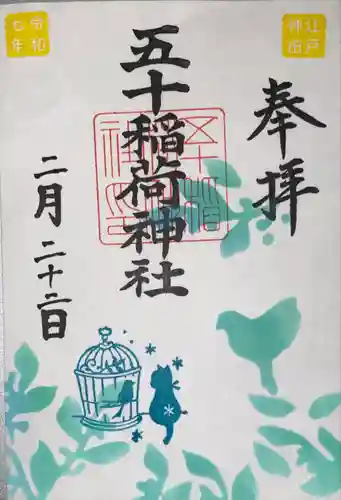 奉拝
五十稲荷神社
二月二十二日
江戸
神田
令和
七年